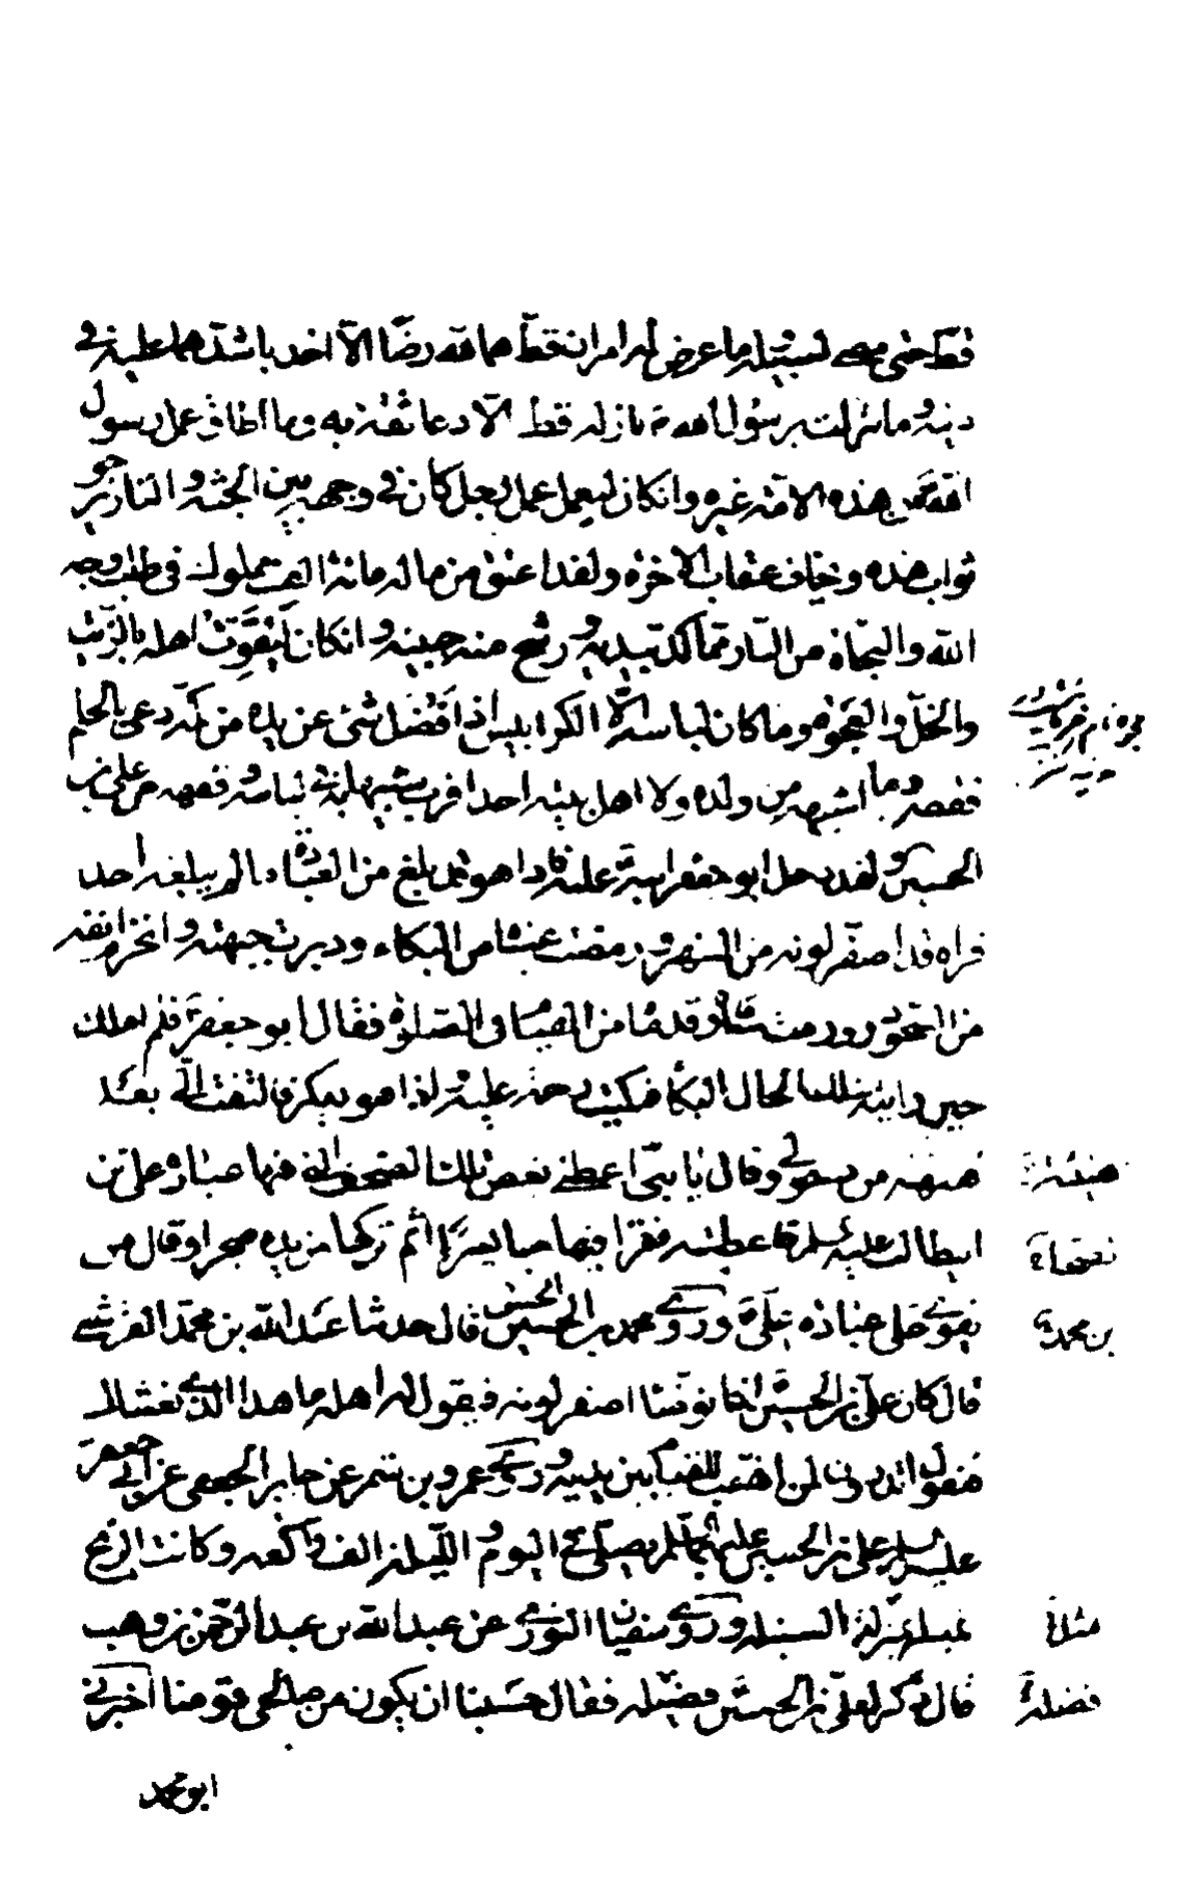 قط حتى مضى لسبيله وما عرض له امران قط هما لله رضا الا اخذ باشدهما عليه في
دينه وما نزلت برسول الله نازلة قط الا دعا ثقة به وما اطاق عمل رسول
الله من هذه الامة غيره وان كان ليعمل عمل رجل كان وجهه بين الجنة والنار يرجو
ثواب هذه ويخاف عقاب الاخرة ولقد اعتق من ماله مائة الف مملوك في طلب وجه
الله والنجاة من النار مما كد بيديه ورشح منه جبينه وان كان ليقوت اهله بالزيت
والخل والعجوة وما كان لباسه الا الكرابيس اذا فضل شئ عن يده من كمه دعى بالجلم
فقصه وما اشبهه من ولده ولا اهل بيته احد اقرب شبها به في لباسه وفقهه من علي بن
الحسين ولقد دخل ابو جعفر ابنه عليه فاذا هو قد بلغ من العبادة ما لم يبلغه احد
فراه قد اصفر لونه من السهر ورمضت عيناه من البكاء ودبرت جبهته وانخرم انفه
من السجود وورمت ساقاه وقدماه من القيام في الصلوة فقال ابو جعفر فلم املك
حين رايته بتلك الحال البكاء فبكيت رحمة عليه واذا هو يفكر فالتفت الي بعد
هنيهة من دخولي وقال يا بني اعطني بعض تلك الصحف التي فيها عبادة علي بن
ابيطالب عليه السلم فاعطيته فقرا فيها شيا يسيرا ثم تركها من يده ضجرا وقال من
يقوى على عبادة علي وروى محمد بن الحسين قال حدثنا عبد الله بن محمد القرشي
قال كان علي بن الحسين اذا توضا اصفر لونه فيقول له اهله ما هذا الذي يغشاك
فيقول اتدرون لمن اتاهب للقيام بين يديه وروى عمرو بن شمر عن جابر الجعفي عن ابي جعفر
عليه السلم علي بن الحسين عليهما السلم يصلي في اليوم والليلة الف ركعة وكانت الريح
تميله بمنزلة السنبلة وروى سفيان الثوري عن عبد الله بن عبد الرحمن بن وهب
قال ذكر لعلي بن الحسين فضيلة فقال حسبنا ان نكون من صالحي قومنا اخبرني
هنيئة
بن محمد
فضله
ابو محمد